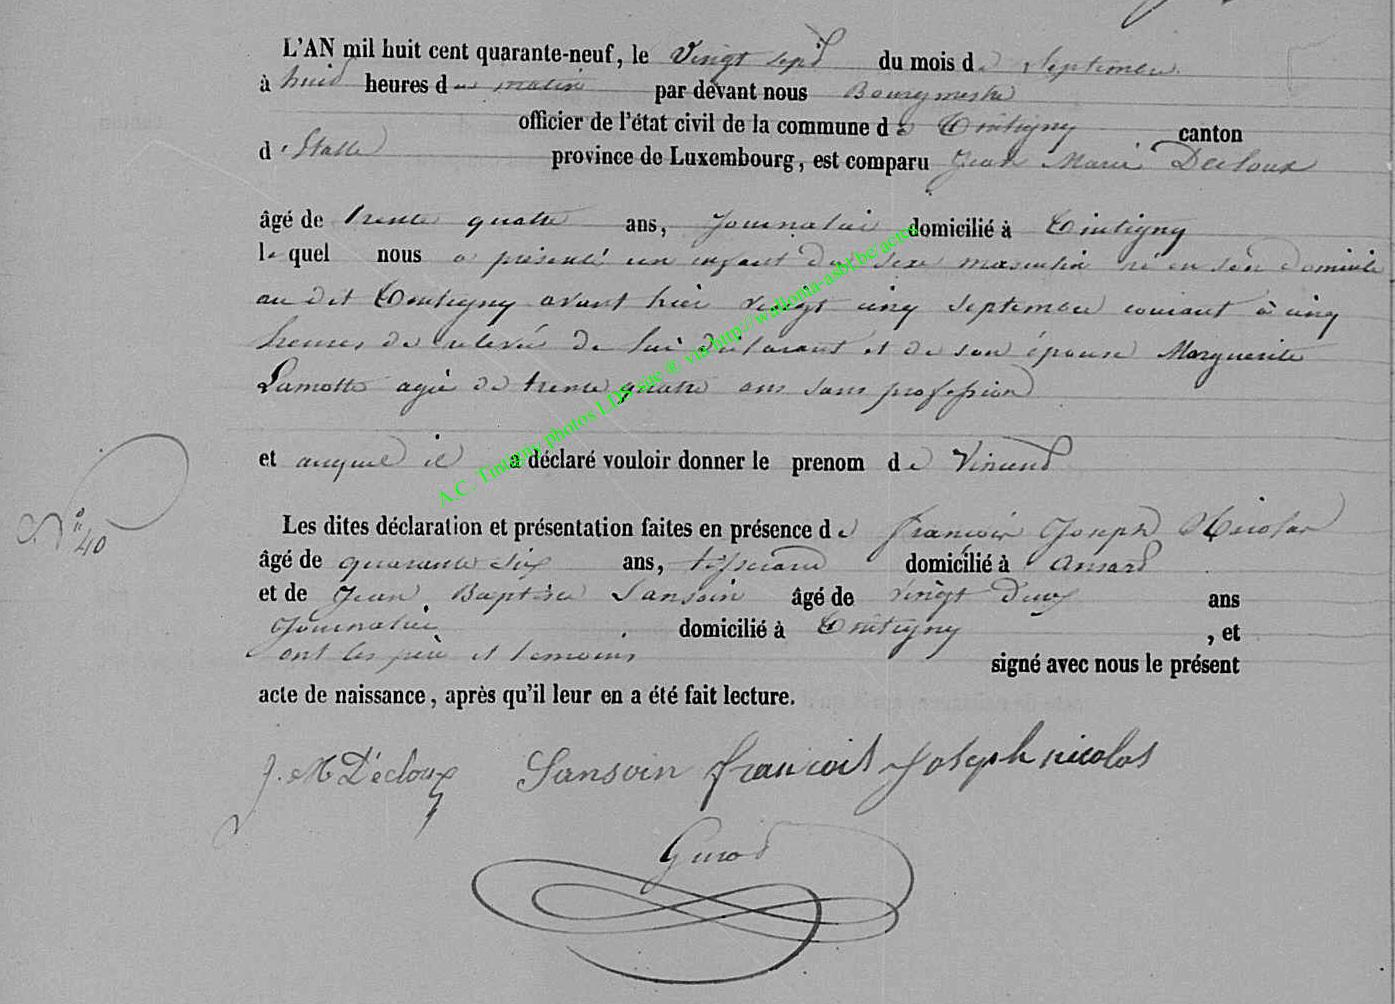 L'AN mil huit cent quarante-neuf, le Vingt sept du mois de Septembre
à huit heures du matin par devant nous Bourgmestre
officier de l'état civil de la commune de Tintigny canton
d'Etalle province de Luxembourg, est comparu Jean Marie Decloux
âgé de trente quatre ans, Journalier domicilié à Tintigny
le quel nous a présenté un enfant du sexe masculin né en son domicile
au dit Tintigny avant hier vingt cinq septembre courant à cinq
heures de relevée de lui déclarant et de son épouse Marguerite
Lamotte agée de trente quatre ans sans profession
et auquel il a déclaré vouloir donner le prenom de Vincent
N° 40
Les dites déclaration et présentation faites en présence de francois Joseph Nicolas
âgé de quarante six ans, tisserand domicilié à Ansart
et de Jean Baptiste Sansoin âgé de vingt deux ans
Journalier domicilié à Tintigny, et
ont les père et temoins signé avec nous le présent
acte de naissance, après qu'il leur en a été fait lecture.
J. M Décloux Sansoin francois Joseph nicolas
A.C. Tintigny photos LDB site @ via http://wallonia-asbl.be/actes